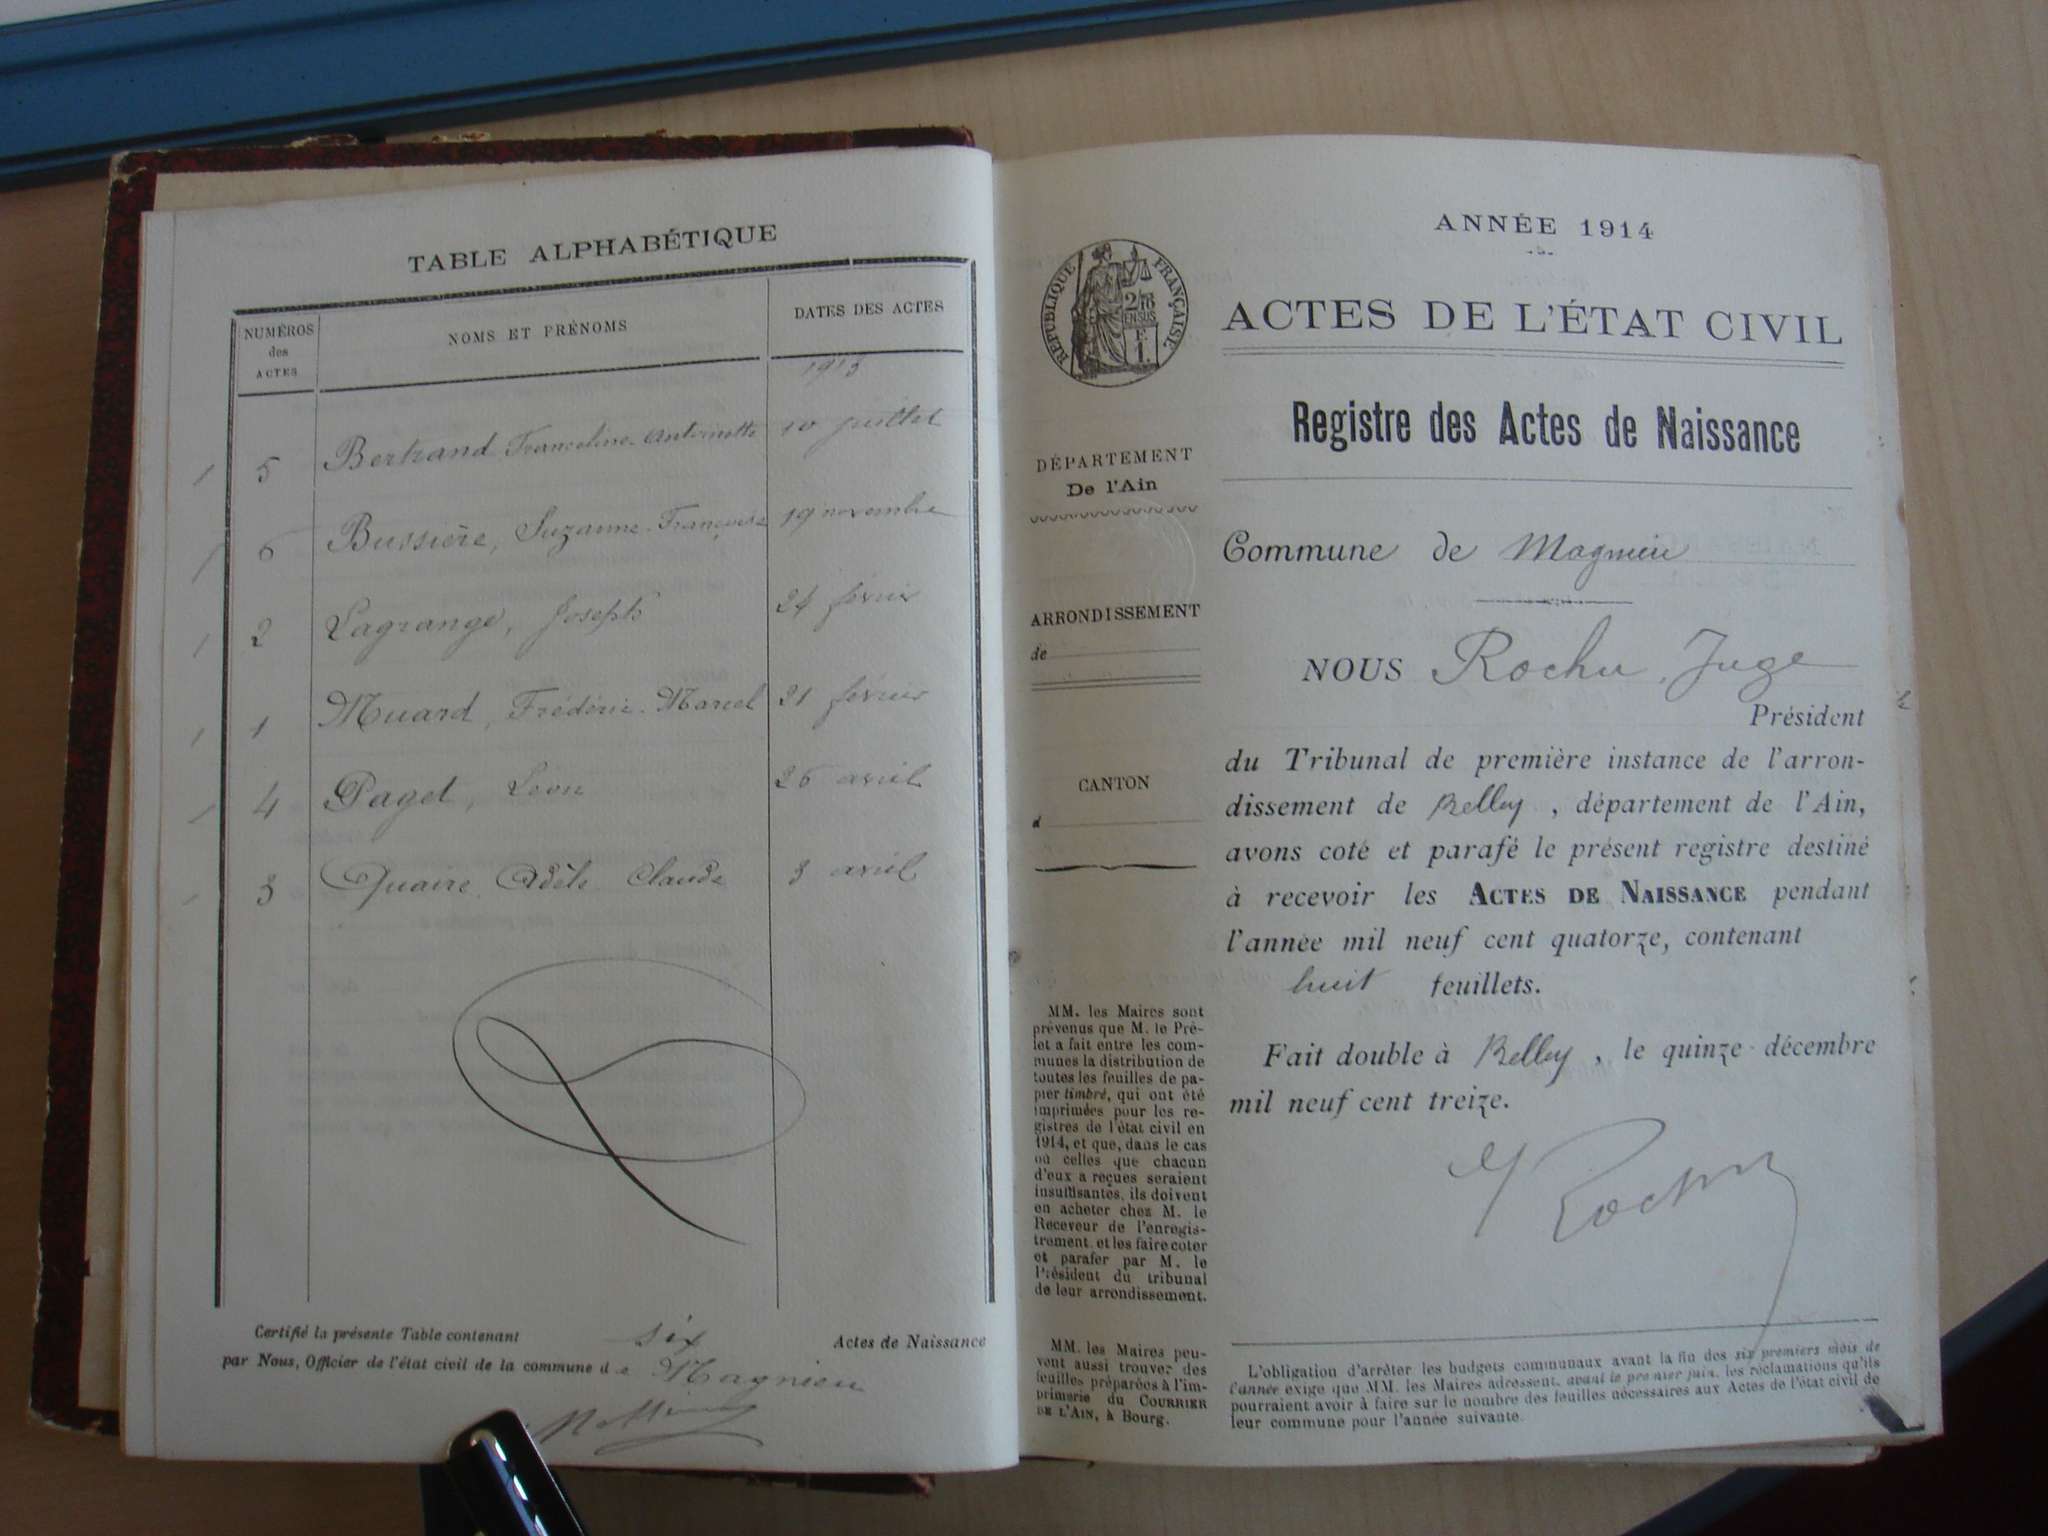 TABLE ALPHABÉTIQUE
NUMÉROS des ACTES
NOMS ET PRÉNOMS
DATES DES ACTES
1913
1 5 Bertrand Franceline-Antoinette 10 juillet
1 6 Bussière, Suzanne-Françoise 19 novembre
1 2 Lagrange, Joseph 24 février
1 1 Muard, Frédéric-Marcel 21 février
1 4 Paget, Léon 26 avril
3 Quaire Adèle Claude 3 avril
Certifié la présente Table contenant six Actes de Naissance
par Nous, Officier de l'état civil de la commune de Magnieu
ANNÉE 1914
RÉPUBLIQUE FRANÇAISE
2/10 EN SUS
F. 1.
ACTES DE L'ÉTAT CIVIL
Registre des Actes de Naissance
DÉPARTEMENT
De l'Ain
ARRONDISSEMENT
de
CANTON
d
MM. les Maires sont
prévenus que M. le Pré-
fet a fait entre les com-
munes la distribution de
toutes les feuilles de pa-
pier timbré, qui ont été
imprimées pour les re-
gistres de l'état civil en
1914, et que, dans le cas
où celles que chacun
d'eux a reçues seraient
insuffisantes, ils doivent
en acheter chez M. le
Receveur de l'enregis-
trement, et les faire coter
et parafer par M. le
Président du tribunal
de leur arrondissement.
MM. les Maires peu-
vent aussi trouver des
feuilles préparées à l'im-
primerie du COURRIER
DE L'AIN, à Bourg.
Commune de Magnieu
NOUS Rochu, Juge
Président
du Tribunal de première instance de l'arron-
dissement de Belley, département de l'Ain,
avons coté et parafé le présent registre destiné
à recevoir les ACTES DE NAISSANCE pendant
l'année mil neuf cent quatorze, contenant
huit feuillets.
Fait double à Belley, le quinze décembre
mil neuf cent treize.
Rochu
L'obligation d'arrêter les budgets communaux avant la fin des six premiers mois de
l'année exige que MM. les Maires adressent, avant le premier juin, les réclamations qu'ils
pourraient avoir à faire sur le nombre des feuilles nécessaires aux Actes de l'état civil de
leur commune pour l'année suivante.